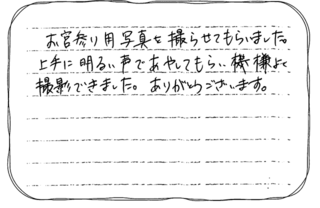 お宮参り用写真を撮らせてもらいました。
上手に明るい声であやしてもらい、機嫌よく
撮影できました。ありがとうございます。